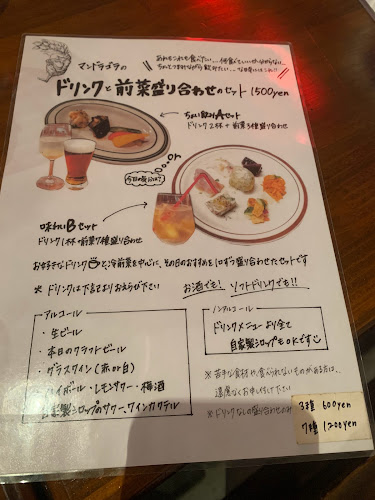 あれもこれも食べたい…何食べていいか分からない…
ちょっとつまみながら飲みたい…な時はこれ!!
マンドラゴラの
ドリンクと前菜盛り合わせのセット 1500yen
ちょい飲みAセット
ドリンク2杯+前菜3種盛り合わせ
OR
今日の気分は?
味わいBセット
ドリンク1杯+前菜7種盛り合わせ
お好きなドリンクと冷前菜を中心に、その日のおすすめを1口ずつ盛り合わせたセットです
※ ドリンクは下記よりお選び下さい
お酒でも! ソフトドリンクでも!!
アルコール
・生ビール
・本日のクラフトビール
・グラスワイン(赤or白)
ハイボール・レモンサワー・梅酒
家製シロップのサワー、ワインカクテル
ノンアルコール
ドリンクメニューより全て
自家製シロップもOKです
※苦手な食材や、食べられないものがある方は、
遠慮なくお申し付け下さい
※ドリンクなしの盛り合わせのみ
3種 600yen
7種 1200yen